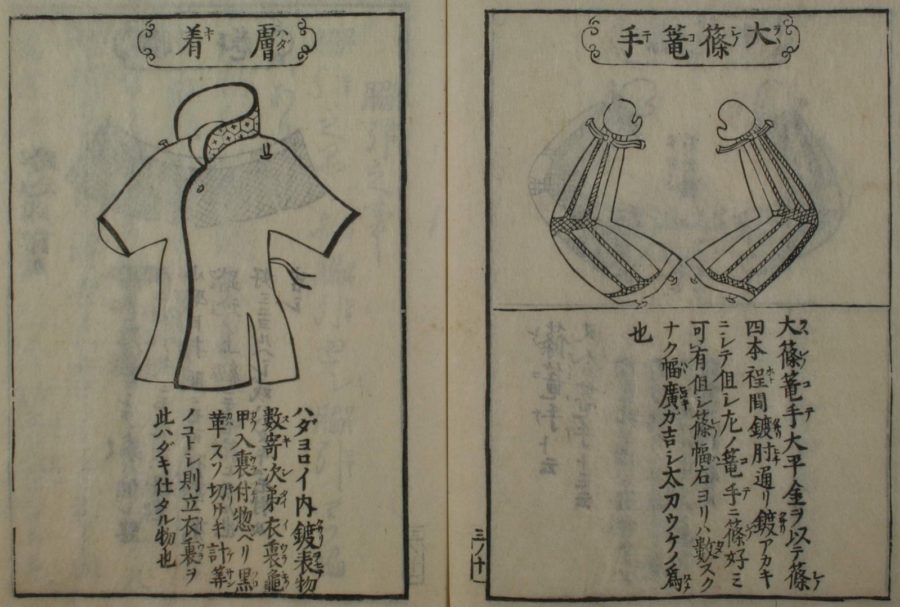 大篠篭手
大篠篭手大平金ヲステ篠
四本程間鍍肘通リ鍍アカキ
ニシテ但シ左ノ篭手ニ篠好ミ
可有但シ篠幅右ヨリハ数スク
ナク幅廣ガ吉シ太刀ウケノ為
也
三ノ十
膚着
ハダヨロイ内鍍表物
数寄次第衣裏亀
甲入裏付惣ベリ黒
革スソ切サキ計筭
ノコトシ則立衣裏ヲ
此ハダキ仕タル物也